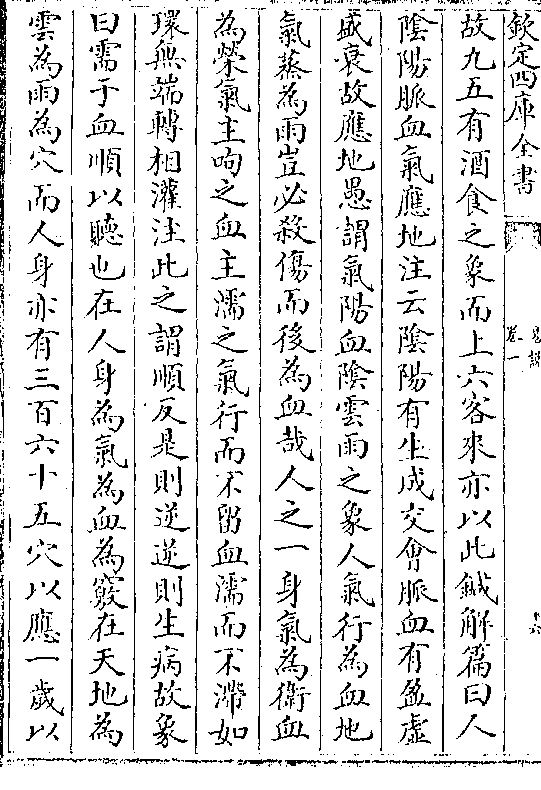 欽定四庫全書
易說
卷一
十六
故九五有酒食之象而上六客來亦以此鍼解篇曰人
陰陽脈血氣應地注云陰陽有生成交會脈血有盈虛
盛衰故應地愚謂氣陽血陰雲雨之象人氣行為血地
氣蒸為雨豈必殺傷而後為血哉人之一身氣為衞血
為榮氣主呴之血主濡之氣行而不留血濡而不滯如
環無端轉相灌注此之謂順反是則逆逆則生病故象
曰需于血順以聽也在人身為氣為血為竅在天地為
雲為雨為穴而人身亦有三百六十五穴以應一歲以